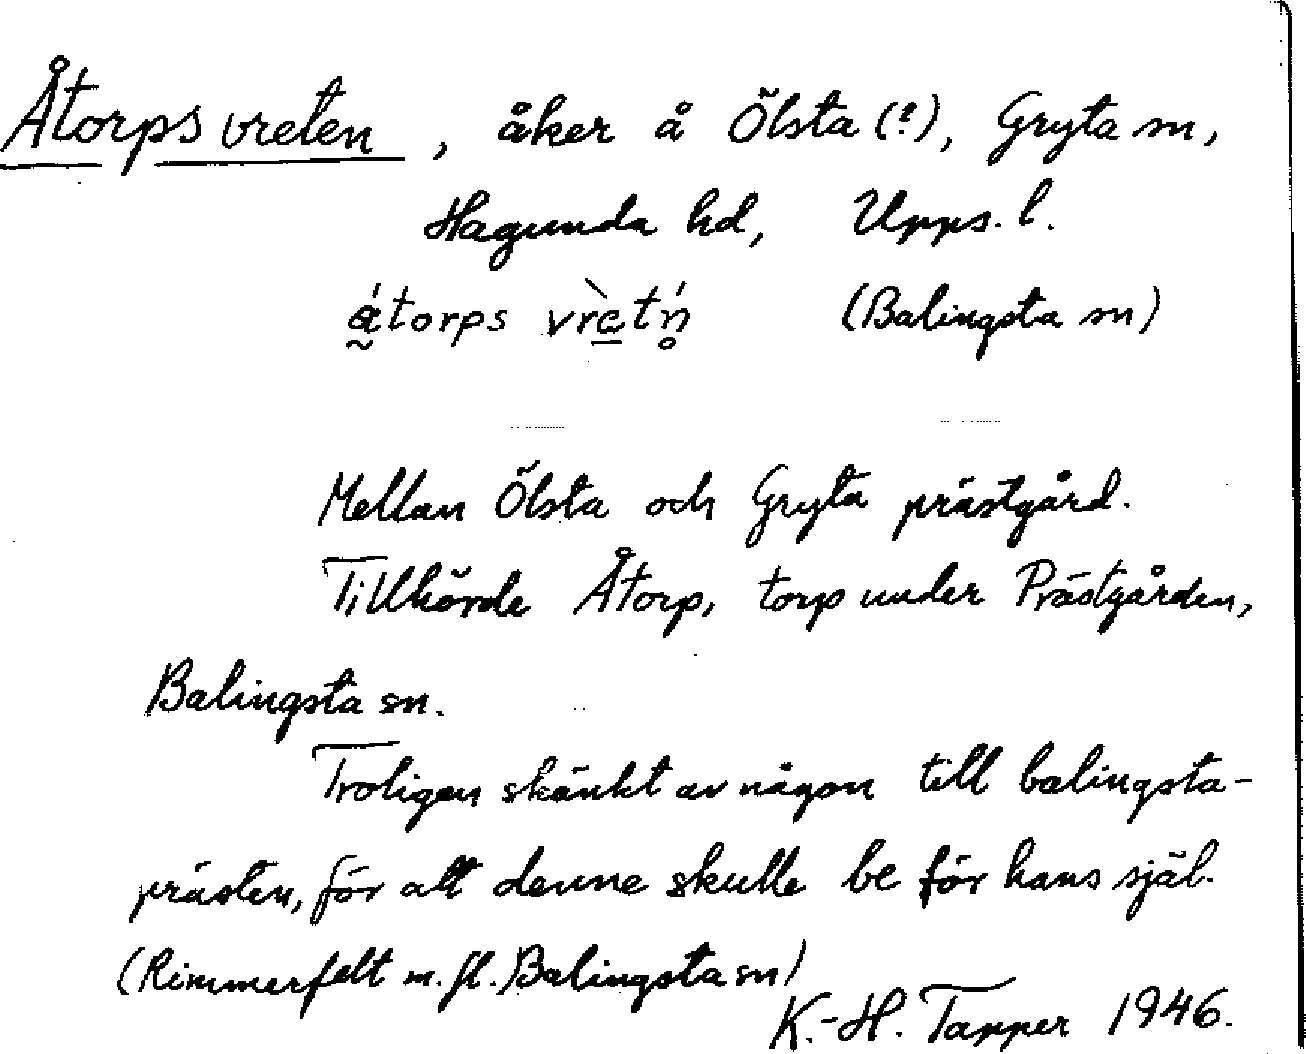 Åtorpsvreten, åker å Ölsta (?), Gryta sn,
Hagunda hd, Upps. l.
á̰torps vrè̱tń̥ (Balingsta sn)
Mellan Ölsta och Gryta prästgård.
Tillhörde Åtorp, torp under Prästgården,
Balingsta sn.
Troligen skänkt av någon till balingsta-
prästen, för att denne skulle be för hans själ.
(Rimmerfelt m. fl. Balingsta sn)
K.-H. Tapper 1946.